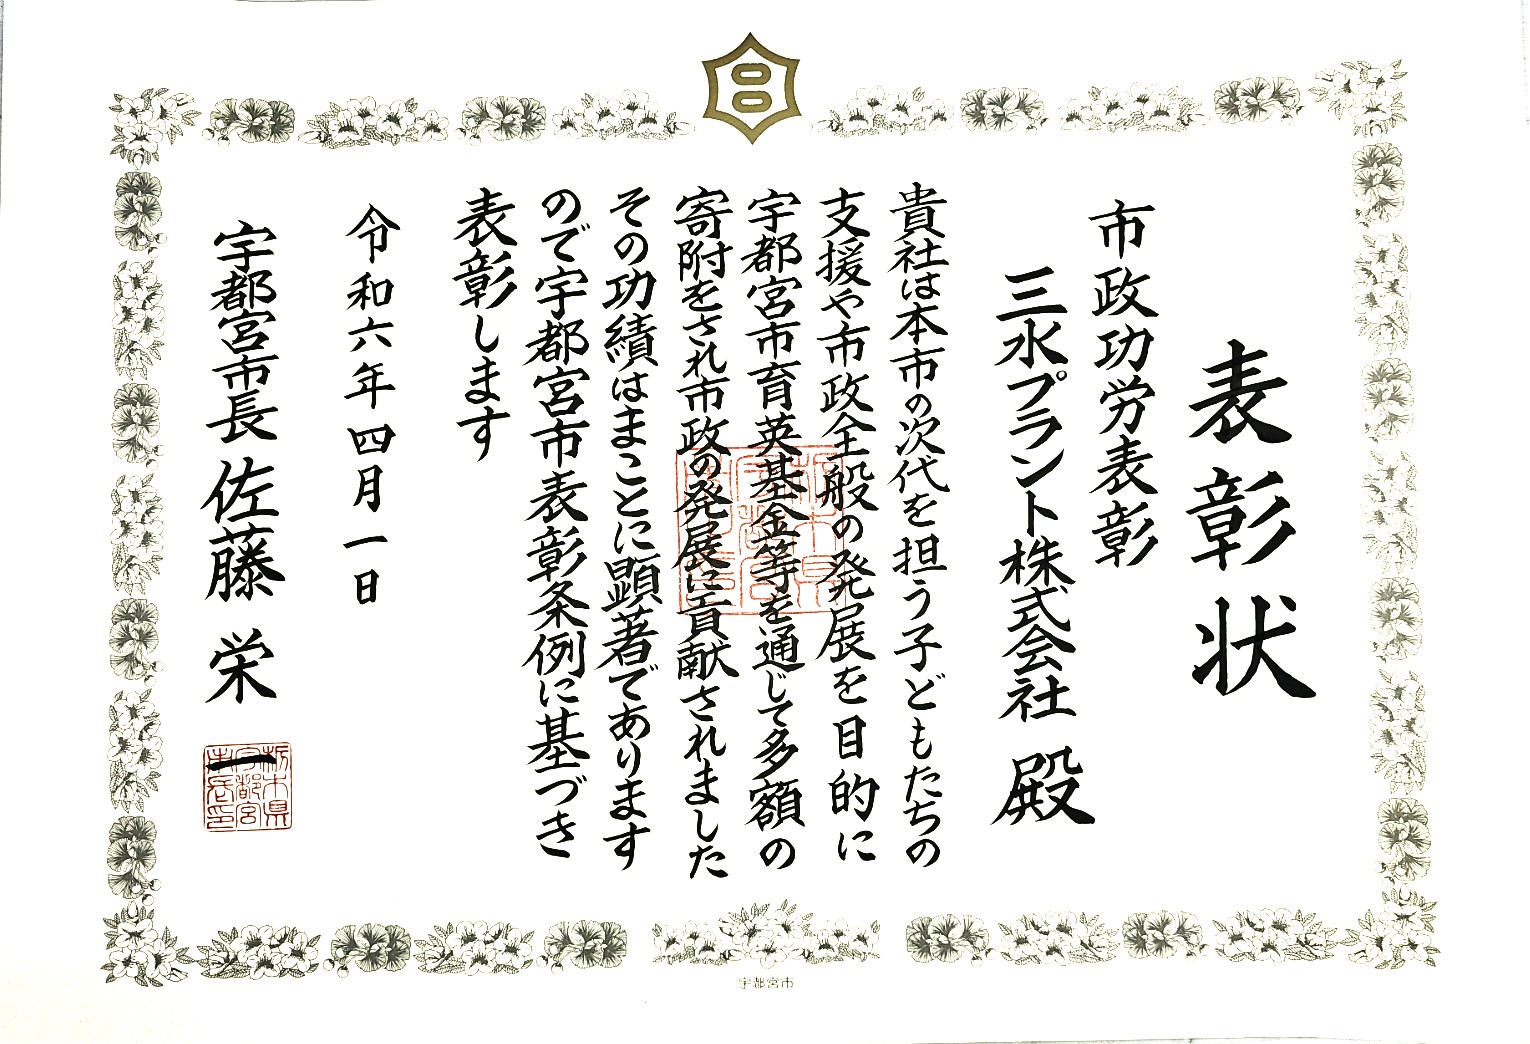 表彰状
市政功労表彰
三水プラント株式会社 殿
貴社は本市の次代を担う子どもたちの
支援や市政全般の発展を目的に
宇都宮市育英基金等を通じて多額の
寄附をされ市政の発展に貢献されました
その功績はまことに顕著であります
ので宇都宮市表彰条例に基づき
表彰します
令和六年四月一日
宇都宮市長 佐藤栄一
栃木県
宇都宮
市長印
宇都宮市